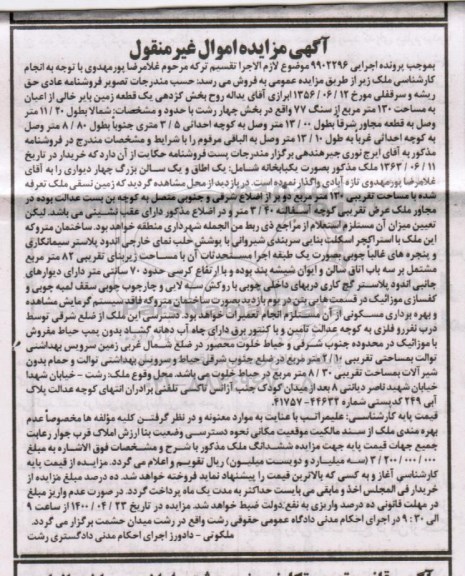 آگهی مزایده اموال غیر منقول
بموجب پرونده اجرایی ۹۹۰۲۲۹۶ موضوع لازم الاجرا تقسیم ترکه مرحوم غلامرضا پورمهدوی با توجه به انجام
کارشناسی ملک زیر از طریق مزایده عمومی به فروش می رسد: حسب مندرجات تصویر فروشنامه عادی حق
ریشه و سرقفلی مورخ ۱۳۵۶/۰۶/۱۲ ابرازی آقای یداله روح بخش گزدهی یک قطعه زمین بایر خالی از اعیان
به مساحت ۱۳۰ متر مربع از سنگ ۷۷ واقع در بخش چهار رشت با حدود و مشخصات: شمالا بطول ۱۱/۲۰ متر
وصل به قطعه مجاور شرقا بطول ۱۳/۰۰ متر وصل به کوچه احداثی ۳/۵ متری جنوبا بطول ۸/۸۰ متر وصل
به کوچه احداثی غربا به طول ۱۳/۱۰ متر وصل به الباقی مرقوم را با شرایط و مشخصات مندرج در فروشنامه
مذکور به آقای ایرج نوری جیرهندهی برگزار مندرجات پست فروشنامه حکایت از آن دارد که خریدار در تاریخ
۱۳۶۳/۰۶/۱۱ ملک مذکور بصورت یکبابخانه شامل: یک اطاق و یک سالن بزرگ چهار دیواری را به آقای
غلامرضا پورمهدوی تازه آبادی واگذار نموده است. در بازدید از محل مشاهده گردید که زمین نسفی ملک تعرفه
شده با مساحت تقریبی ۱۳۰ متر مربع دو بر از اضلاع شرقی و جنوبی متصل به کوچه بن بست عدالت بوده در
مجاور ملک عرض تقریبی کوچه ۳/۴۰ متر و در اضلاع مذکور دارای عقب نشینی می باشد. لیکن
تعیین میزان آن مستلزم استعلام از مراجع ذی ربط من الجمله شهرداری منطقه خواهد بود. ساختمان متروکه
این ملک با استراکچر اسکلت بنایی سربندی شیروانی با پوشش حلب نمای خارجی اندود پلاستر سیمانکاری
و پنجره های غالبا چوبی بصورت یک طبقه اجرا مستحدثات آن با مساحت زیربنای تقریبی ۸۲ متر مربع
مشتمل بر سه باب اتاق سالن و ایوان شیشه بند بوده و با ارتفاع کرسی حدود ۷۰ سانتی متر دارای دیوارهای
جانبی اندود پلاستر گچ کاری دربهای داخلی چوبی با روکش سه لایی و چارچوب چوبی سقف لمبه چوبی و
کفسازی موزائیک در قسمت هایی بتن در یوم بازدید بصورت ساختمان متروکه فاقد سیستم گرمایش مشاهده
و بهره برداری مسکونی از آن مستلزم انجام تعمیرات خواهد بود. دسترسی این ملک از ضلع شرقی توسط
درب نفررو فلزی به کوچه عدالت تامین و با کنتور برق دارای چاه آب دهانه گشاد بدون پمپ حیاط مفروش
با موزائیک در محدوده جنوب شرقی و حیاط خلوت محصور در ضلع شمال غربی زمین سرویس بهداشتی
توالت بمساحتی تقریبی ۲/۱۰ متر مربع در ضلع جنوب شرقی حیاط و سرویس بهداشتی توالت و حمام بدون
شیر آلات بمساحت تقریبی ۸/۳۰ متر مربع در حیاط خلوت می باشد. محل وقوع ملک: رشت - خیابان شهدا
خیابان شهید ناصر دیانتی ۸ بعد از میدان کودک جنب آژانس تاکسی تلفنی برادران انتهای کوچه عدالت پلاک
آبی ۲۴۹ کدپستی شماره ۴۴۶۳۳-۴۱۷۵۷.
قیمت پایه کارشناسی: علیمراتب با عنایت به موارد معنونه و در نظر گرفتن کلیه مؤلفه ها مخصوصا عدم
بهره مندی ملک از سند مالکیت موقعیت مکانی نحوه دسترسی وضعیت بنا ارزش املاک قرب جوار رعایت
جمیع جهات قیمت پایه جهت مزایده ششدانگ ملک مذکور با شرح و مشخصات فوق الاشاره به مبلغ
۳/۲۰۰/۰۰۰/۰۰۰ (سه میلیارد و دویست میلیون) ریال تقویم و اعلام می گردد. مزایده از قیمت پایه
کارشناسی آغاز و به کسی که بالاترین قیمت را پیشنهاد نماید فروخته خواهد شد. ده درصد مبلغ مزایده از
خریدار فی المجلس اخذ و مابقی می بایست حداکثر به مدت یک ماه پرداخت گردد. در صورت عدم واریز مبلغ
در مهلت قانونی ده درصد واریزی به نفع دولت ضبط خواهد شد. مزایده در تاریخ ۱۴۰۰/۰۴/۲۳ از ساعت ۹
الی ۹:۳۰ در اجرای احکام مدنی دادگاه عمومی حقوقی رشت واقع در رشت میدان حشمت برگزار می گردد.
ملکوتی - دادورز اجرای احکام مدنی دادگستری رشت